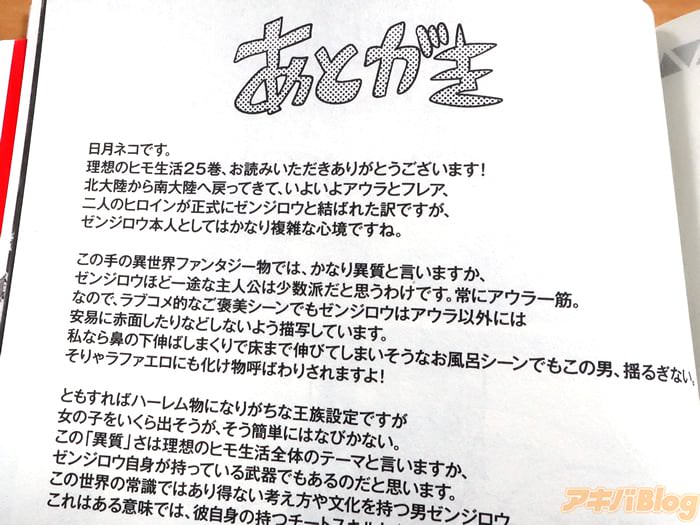 あとがき
日月ネコです。
理想のヒモ生活25巻、お読みいただきありがとうございます!
北大陸から南大陸へ戻ってきて、いよいよアウラとフレア、
二人のヒロインが正式にゼンジロウと結ばれた訳ですが、
ゼンジロウ本人としてはかなり複雑な心境ですね。
この手の異世界ファンタジー物では、かなり異質と言いますか、
ゼンジロウほど一途な主人公は少数派だと思うわけです。常にアウラ一筋。
なので、ラブコメ的なご褒美シーンでもゼンジロウはアウラ以外には
安易に赤面したりなどしないよう描写しています。
私なら鼻の下伸ばしまくりで床まで伸びてしまいそうなお風呂シーンでもこの男、揺るぎない。
そりゃラファエロにも化け物呼ばわりされますよ!
ともすればハーレム物になりがちな王族設定ですが
女の子をいくら出そうが、そう簡単にはなびかない。
この「異質」さは理想のヒモ生活全体のテーマと言いますか、
ゼンジロウ自身が持っている武器でもあるのだと思います。
この世界の常識ではあり得ない考え方や文化を持つ男ゼンジロウ
これはある意味では、彼自身の持つチートスキルと
アキバBlog